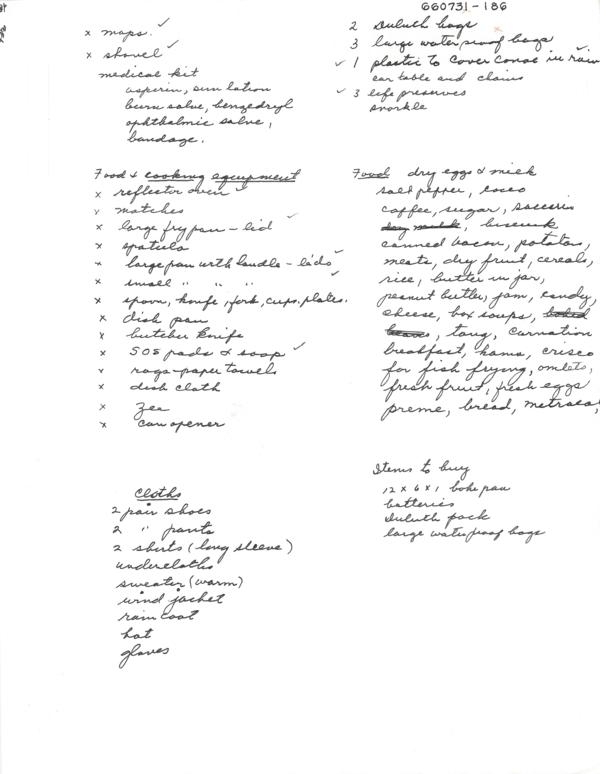 660731-186
x maps. ✓
x shovel ✓
medical kit
asperin, sun lotion
burn salve, benzedryl
ophthalmic salve,
bandage.
2 Duluth bags
3 large waterproof bags
✓ 1 plastic to cover canoe in rain
car table and chairs
✓ 3 life preservers
snorkle
Food & cooking equipment
x reflector oven ✓
x matches
x large fry pan - lid ✓
x spatula
x large pan with handle - lids ✓
x small " " " ✓
x spoon, knife, fork, cups, plates.
x dish pan
x butcher knife
x SOS pads & soap ✓
x rags - paper towels
x dish cloth
x
x can opener
Food dry eggs & milk
salt pepper, coco
coffee, sugar, saccerin
dry milk, bisquik
canned bacon, potatoes,
meats, dry fruit, cereals,
rice, butter in jar,
peanut butter, jam, candy,
cheese, box soups, baked
beans, tang, carnation
breakfast, hams, crisco
for fish frying, omlets,
fresh fruit, fresh eggs
preme, bread, metrecal,
cloths
2 pair shoes
2 " pants
2 shirts (long sleeve)
undercloths
sweater (warm)
wind jacket
rain coat
hat
gloves
Items to buy
12 x 6 x 1 bake pan
batteries
Duluth pack
large waterproof bags